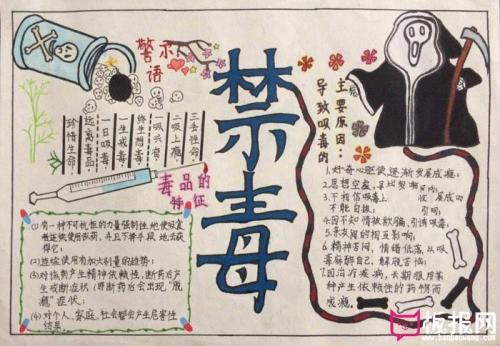 警示语
珍惜生命
远离毒品
一日吸毒
一生戒毒
终生想毒
一吸
二吸上瘾
性命
毒品的特征
(1)有一种不可抗拒的力量强制性地使吸食
连续使用该药,并且不择手段地去获
得它;
(2)连续使用有加大剂量的趋势;
(3)对该药产生精神依赖性,断药后产
生戒断症状(即断药后会出现"脱
瘾"症状;
(4)对个人、家庭、社会都会产生危害性
结果。
禁毒
导致吸毒的主要原因:
1.好奇心驱使,逐渐发展成瘾;
2.思想空虚,寻
3.不相信吸毒上 发展成功
不能自拔;
4.因不知情被欺骗,引诱吸毒;
5.亲友间的相互影响;
6.精神苦闷,情绪低落,从吸
毒麻醉自己,解脱苦恼;
7.因治疗疾病,长期服用某
种产生依赖性的药物而
成瘾。
板报网
www.banbaowang.com